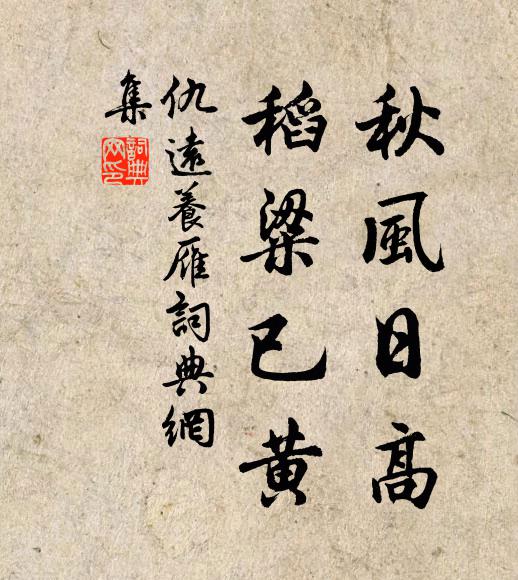 秋風日高
稻粱已黃
仇遠養雁詞典網
集
詞典
網印